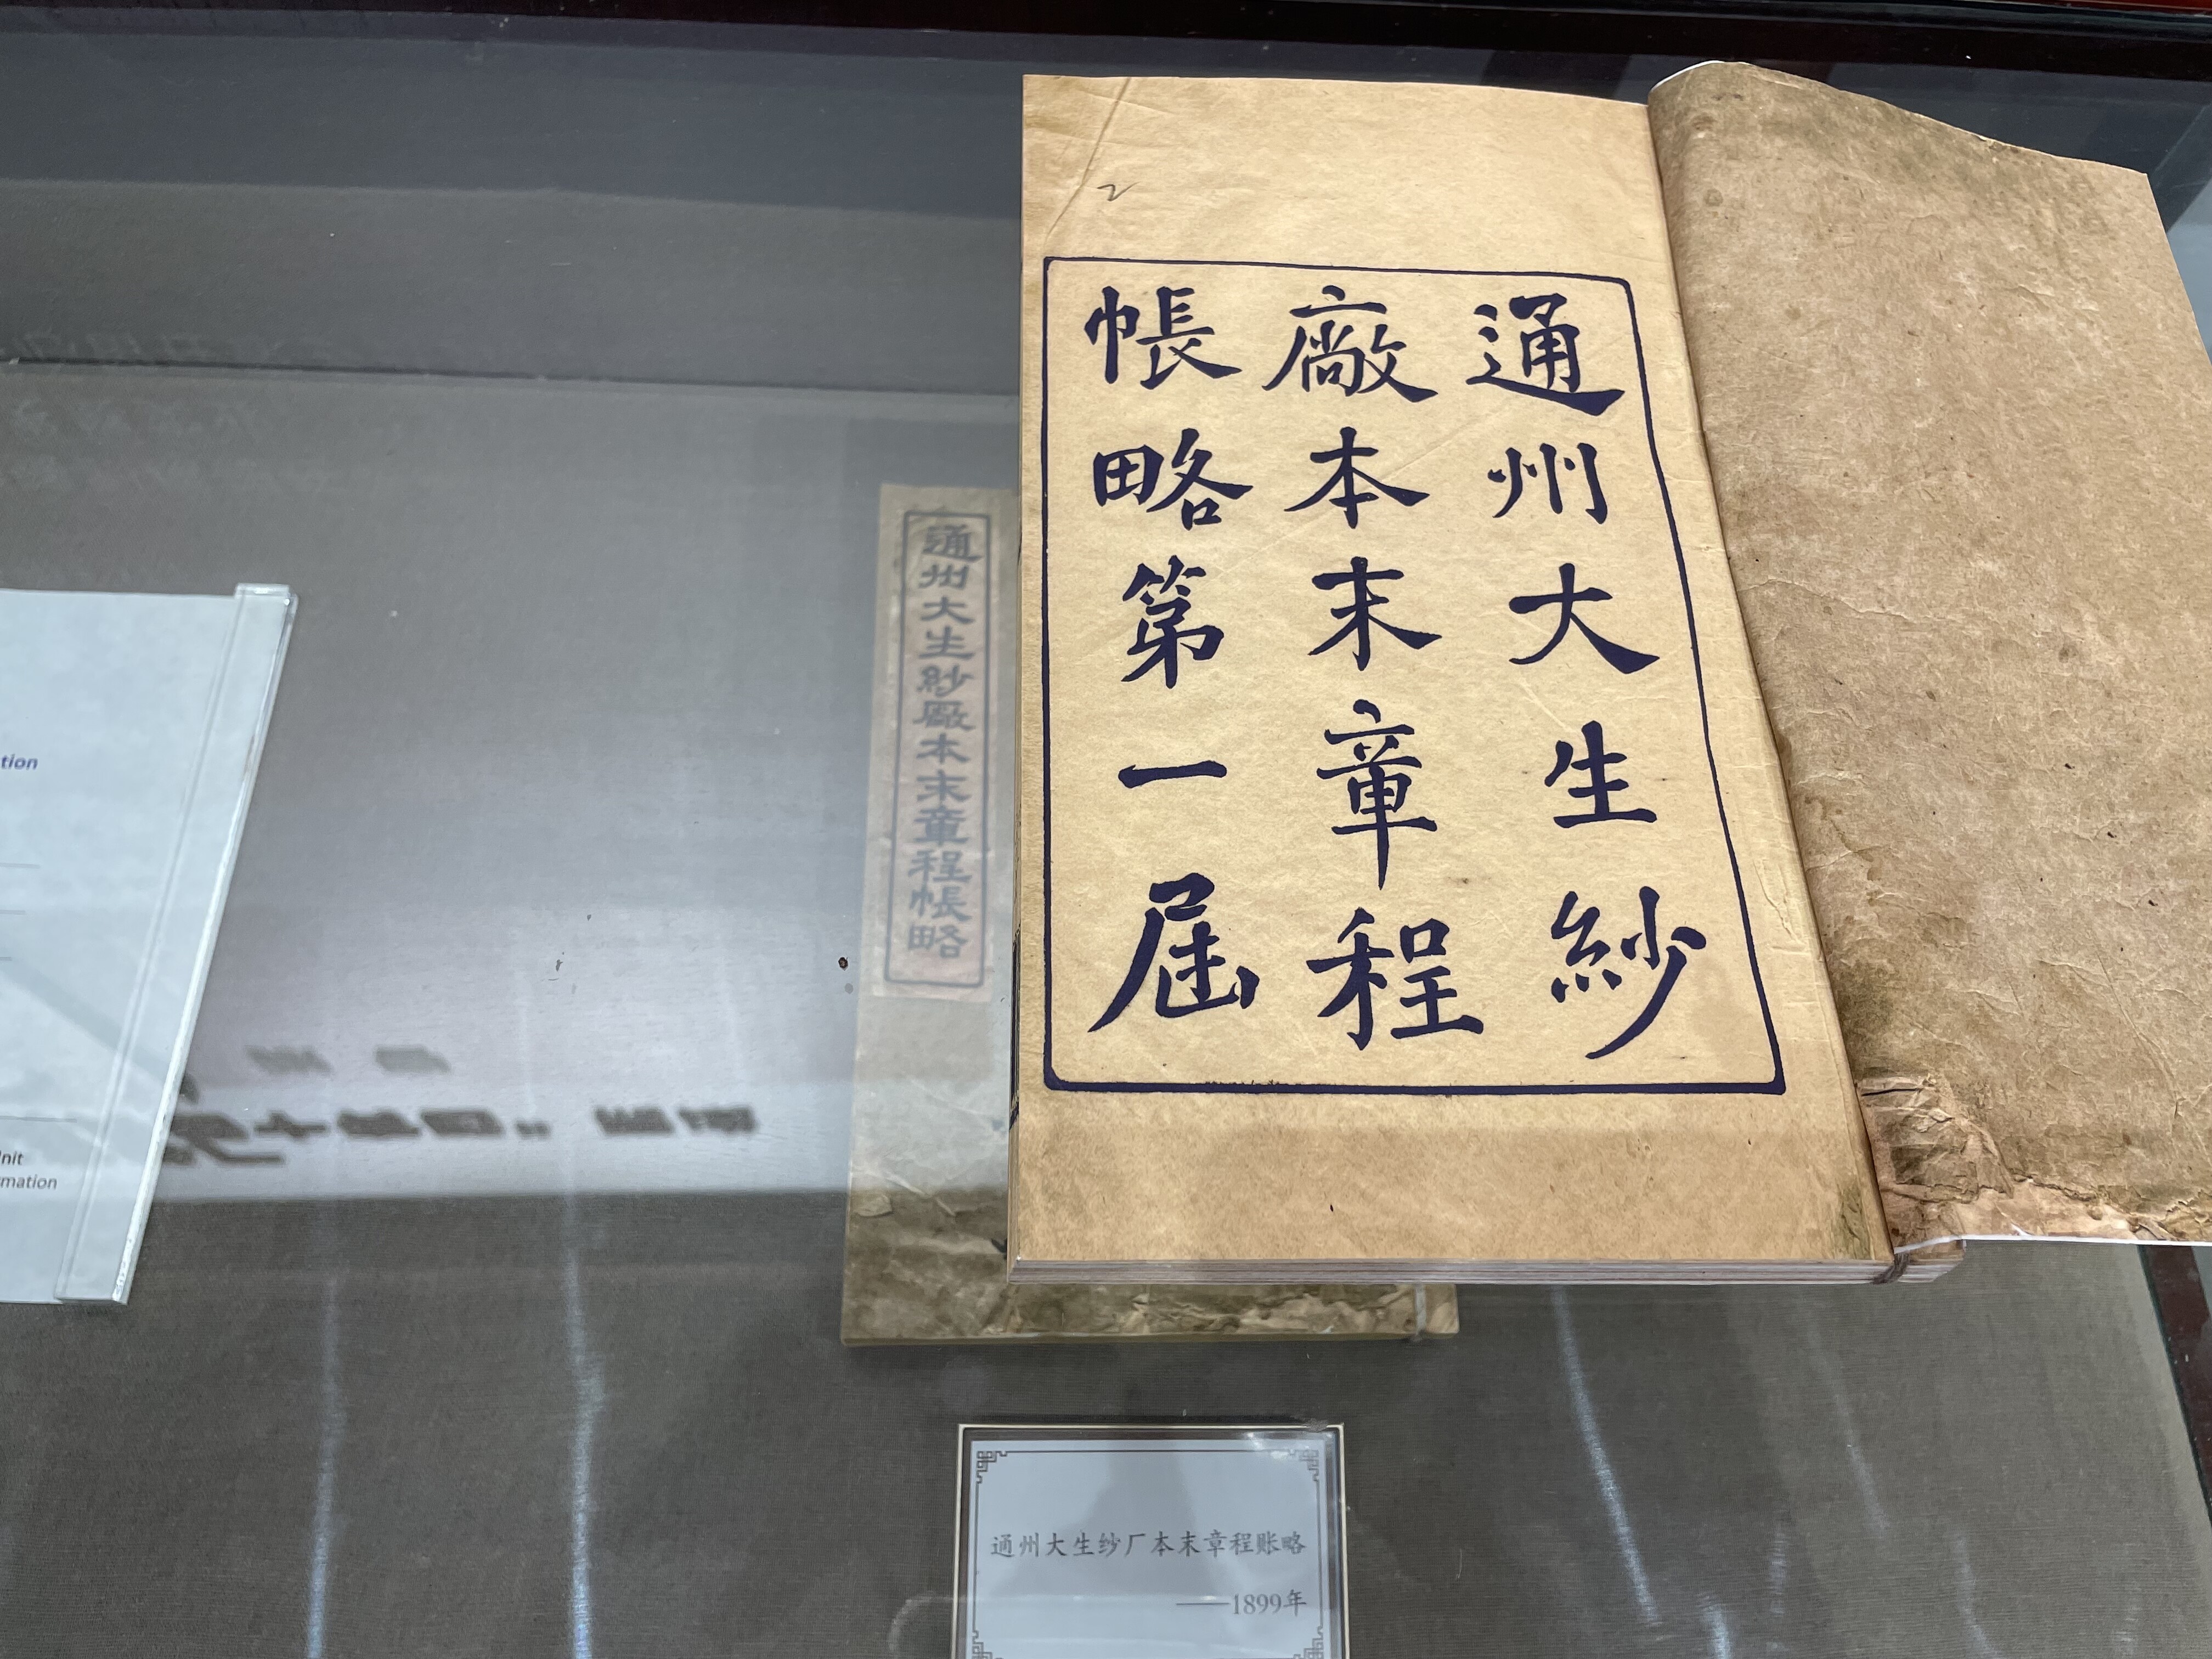 通州大生紗
廠本末章程
帳略第一屆
2
通州大生紗廠本末章程帳略
通州大生纱厂本末章程账略
——1899年
tion
nit
mation